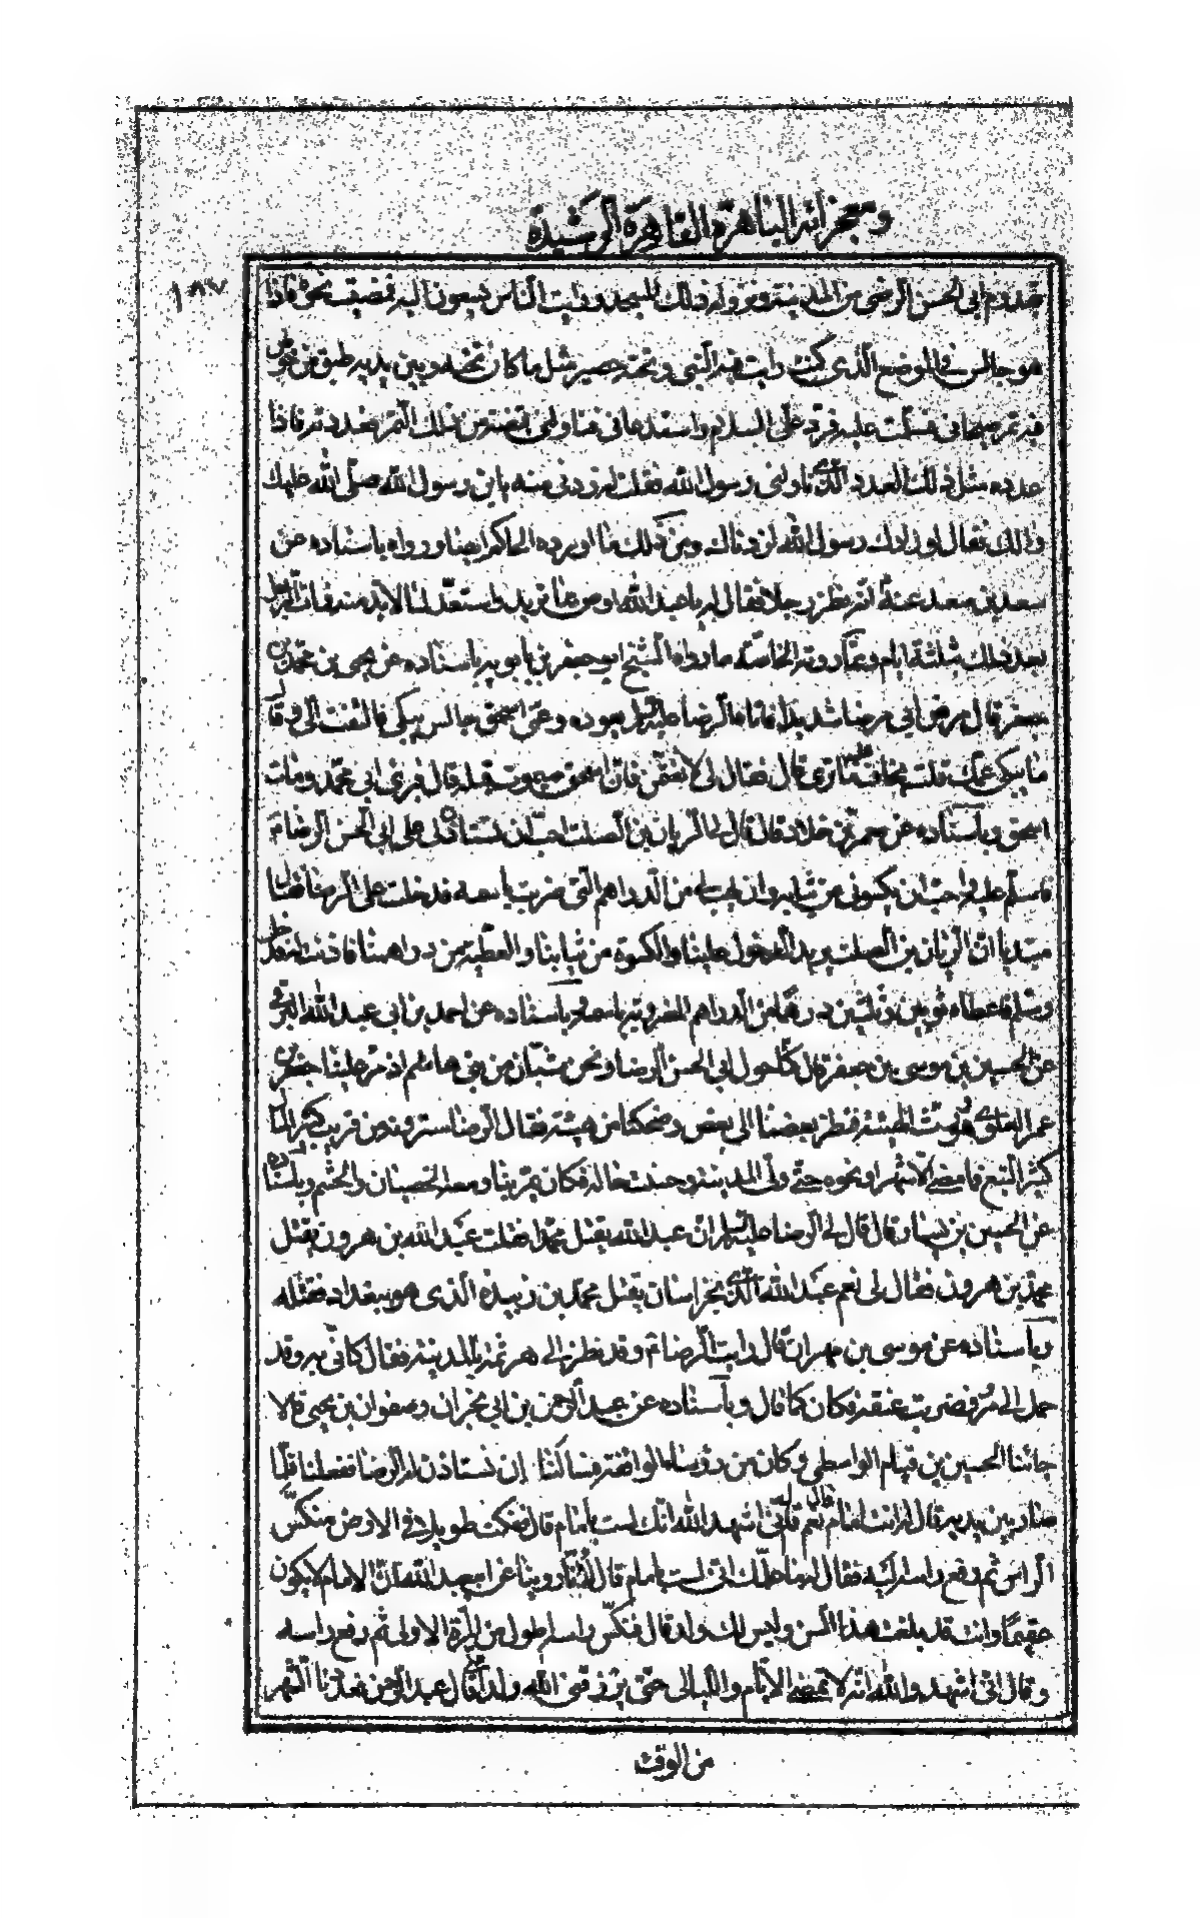 ومعجزاته الباهرة القاهرة الرشيدة
١٨٧
قدوم ابى الحسن الرضى من المدينة ونزوله ذلك المسجد ورايت الناس يسعون اليه فمضيت نحوه فاذا
هو جالس فى الموضع الذى كنت رايت فيه النبى وتحته حصير مثل ما كان تحته وبين يديه طبق من خوص
فيه تمر صيحانى فسلمت عليه فرد على السلام واستدعانى فناولنى قبضة من ذلك التمر فعددته فاذا
عدده مثل ذلك العدد الذى ناولنى رسول الله فقلت له زدنى منه يابن رسول الله صلى الله عليك
والك فقال لو زادك رسول الله لزدناك ومن ذلك ما اورده الحاكم ايضا ورواه باسناده عن
سعد بن سعد عنه انه نظر رجلا فقال له يا عبد الله اوص بما تريد واستعد لما لابد منه فمات الرجل
بعد ذلك بثلثة ايام وعما روته الخاصة ما رواه الشيخ ابو جعفر بن بابويه باسناده عن يحيى بن محمد بن
جعفر قال مرض ابى مرضا شديدا فاتاه الرضا عليه السلم يعوده وعمى اسحق جالس يبكى فالتفت الى وقال
ما يبكى عمك قلت يخاف عليه ما ترى قال فقال لى لا تغتمن فان اسحق سيموت قبله قال فبرئ ابى محمد ومات
اسحق وباسناده عن معمر بن خلاد قال قال لى الريان بن الصلت احب ان تستاذن لى على ابى الحسن الرضا م
فاسلم عليه واحب ان يكسونى من ثيابه وان يهب لى من الدراهم التى ضربت باسمه فدخلت على الرضا فقال لى
مبتديا ان الريان بن الصلت يريد الدخول علينا والكسوة من ثيابنا والعطية من دراهمنا فاذنت له فدخل
وسلم فاعطاه ثوبين وثلثين درهما من الدراهم المضروبة باسمه وباسناده عن احمد بن ابى عبد الله البرقى
عن الحسين بن موسى بن جعفر قال كنا حول ابى الحسن الرضا ونحن شبان من بنى هاشم اذ مر علينا جعفر بن
عمر العلوى وهو رث الهيئة فنظر بعضنا الى بعض وضحكنا من هيئته فقال الرضا سترونه عن قريب كثير المال
كثير التبع فما مضى الا شهر او نحوه حتى ولى المدينة وحسنت حاله فكان يمر بنا ومعه الخصيان والحشم وباسناده
عن الحسين بن بشار قال قال لى الرضا عليه السلم ان عبد الله يقتل محمدا فقلت عبد الله بن هرون يقتل
محمد بن هرون فقال لى نعم عبد الله الذى بخراسان يقتل محمد بن زبيدة الذى هو ببغداد فقتله
وباسناده عن موسى بن مهران قال رايت الرضا م وقد نظر الى هرثمة بالمدينة فقال كانى به وقد
حمل الى مرو فضربت عنقه فكان كما قال وباسناده عن عبد الرحمن بن ابى نجران وصفوان بن يحيى قالا
جائنا الحسين بن قياما الواسطى وكان من رؤساء الواقفة فسالنا ان نستاذن له الرضا ففعلنا فلما
صار بين يديه قال له انت امام قال نعم قال فانى اشهد الله انك لست بامام قال فنكت طويلا فى الارض منكس
الراس ثم رفع راسه اليه فقال له ما علمك انى لست بامام قال انا روينا عن ابيعبد الله ان الامام لا يكون
عقيما وانت قد بلغت هذا السن وليس لك ولد قال فنكس راسه اطول من المرة الاولى ثم رفع راسه
وقال انى اشهد والله انه لا تمضى الايام والليالى حتى يرزقنى الله ولدا قال عبد الرحمن فعددنا الشهر
من الوقت